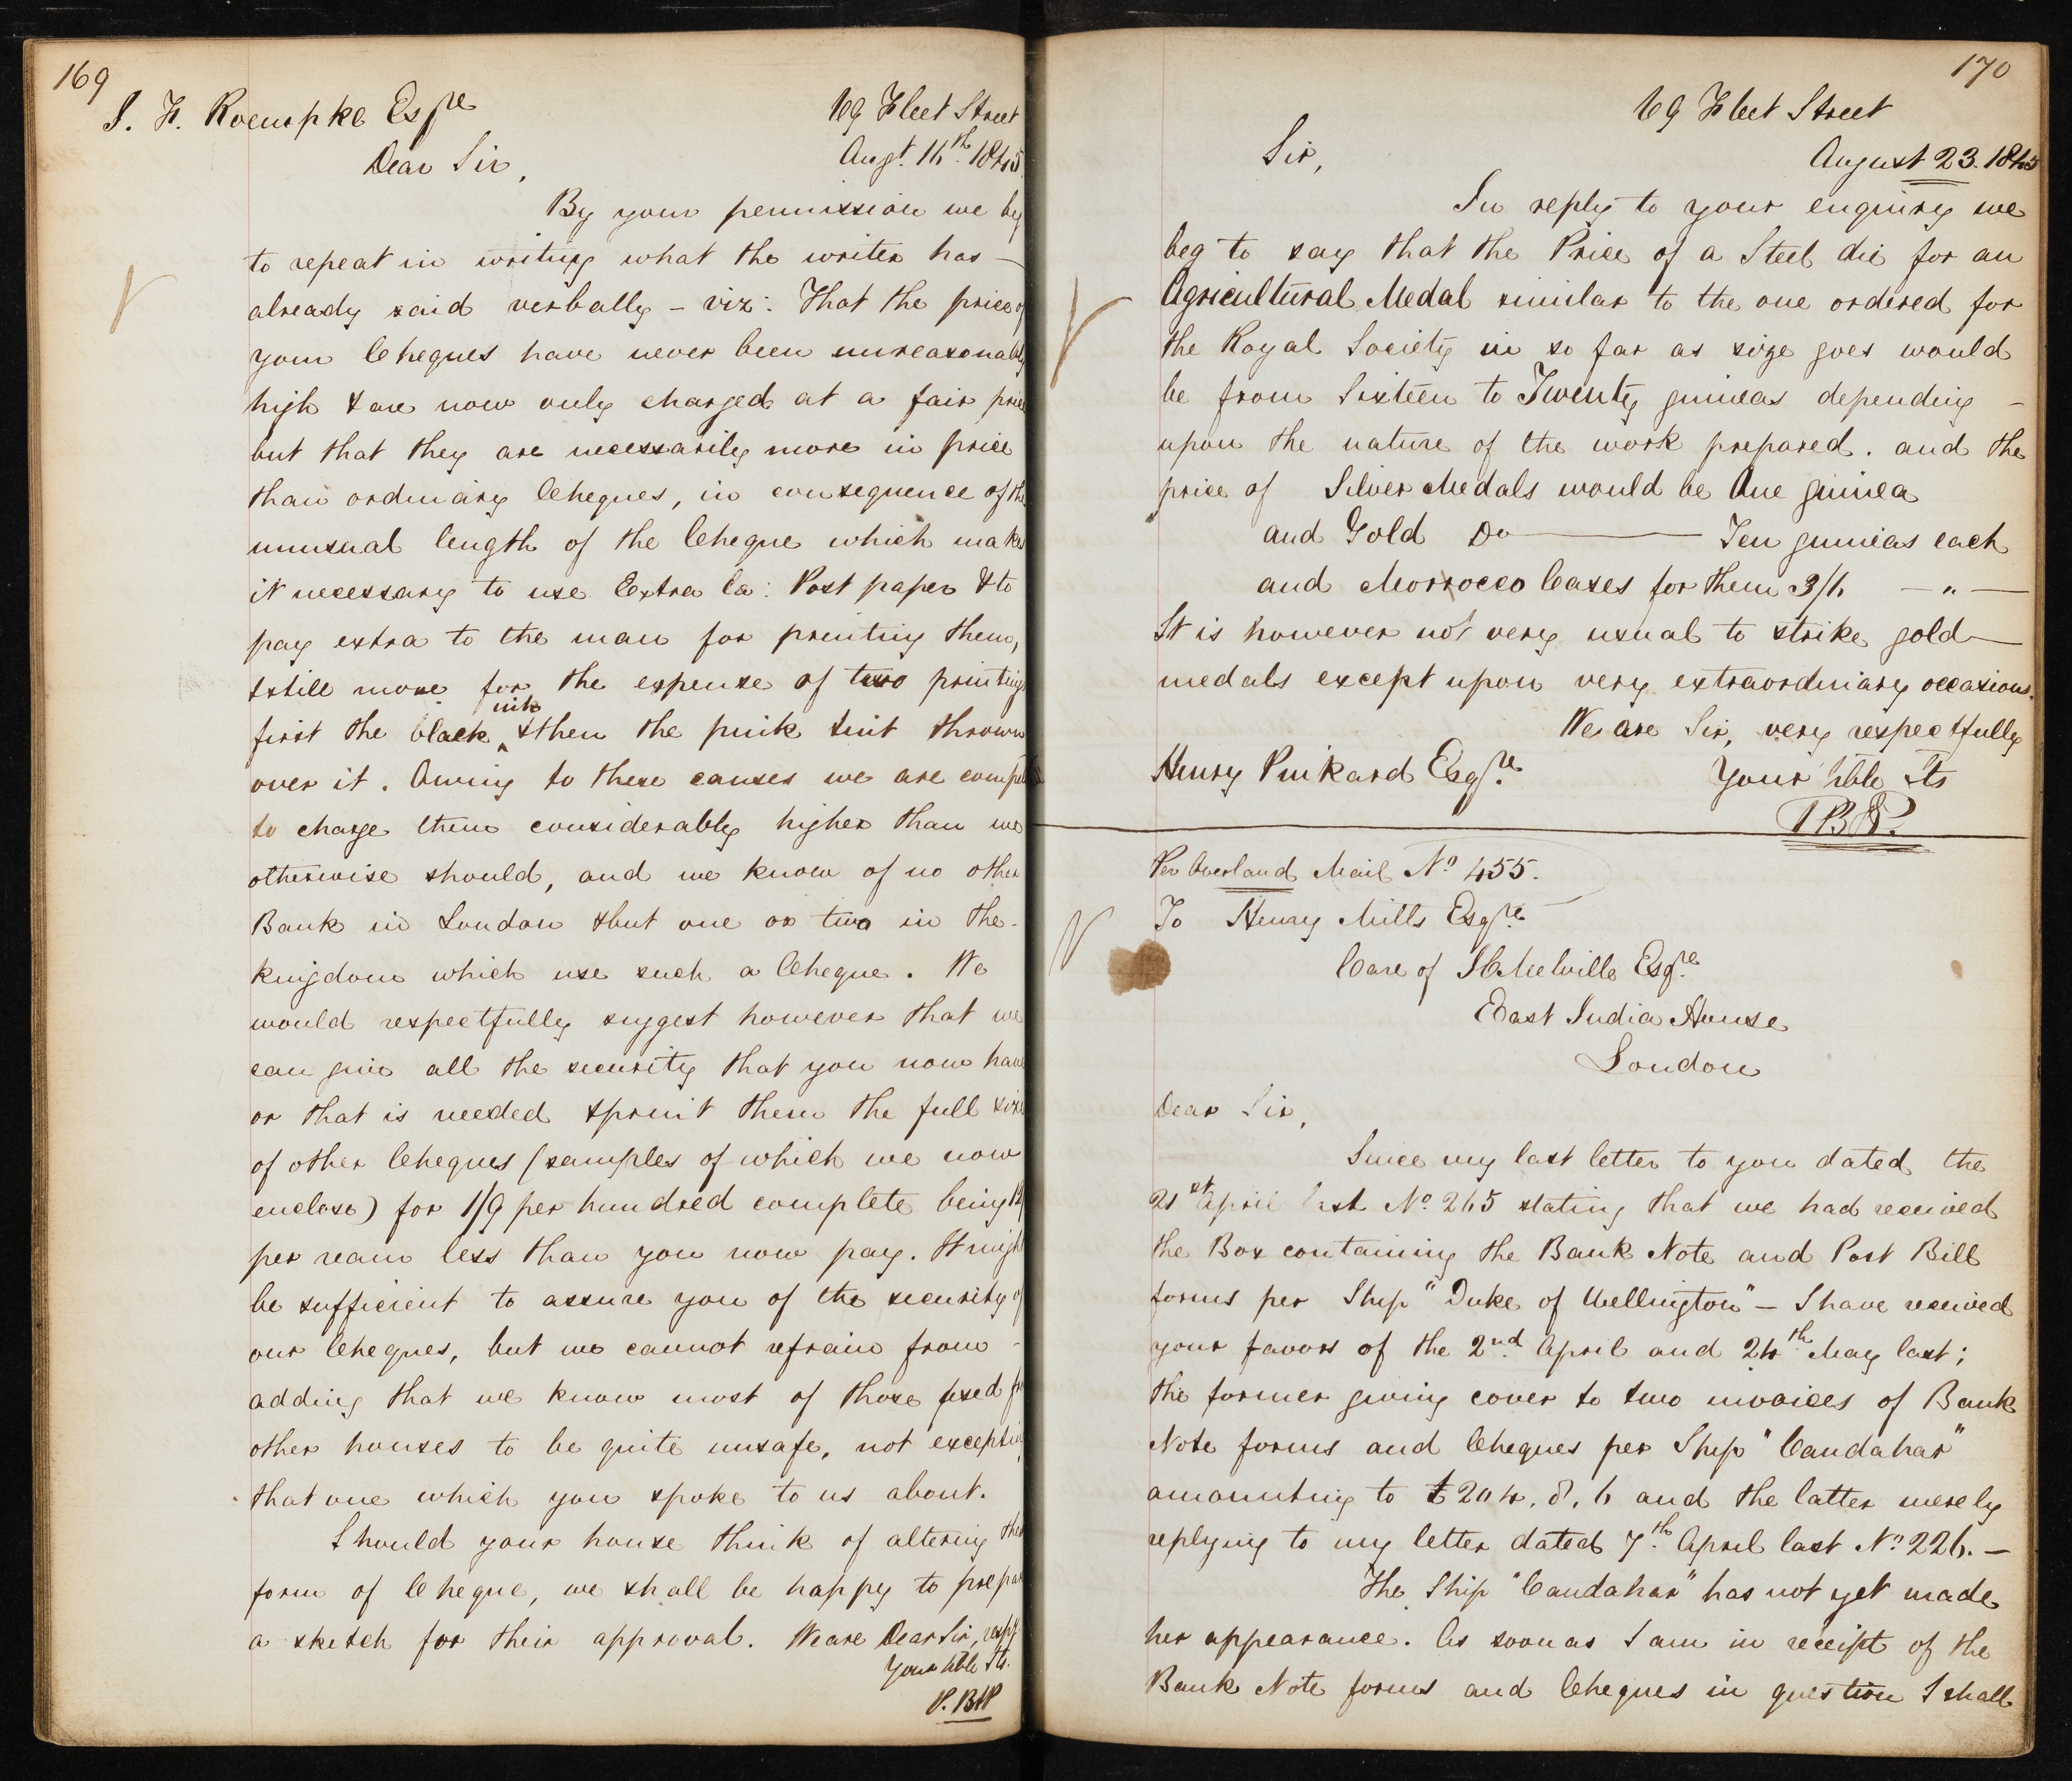 169
J. H. Roempke Esqre
69 Fleet Street
Augt. 16th. 1845
Dear Sir,
By your permission we beg
to repeat in writing what the writer has —
already said verbally – viz: That the price of
your Cheques have never been unreasonably
high & are now only charged at a fair price
but that they are necessarily more in price
than ordinary Cheques, in consequence of the
unusual length of the Cheque which makes
it necessary to use Extra La: Post paper & to
pay extra to the man for printing them,
& still more for the expense of two printings
first the black ink & then the pink tint thrown
over it. Owing to these causes we are
to charge them considerably higher than we
otherwise should, and we know of no other
Bank in London & but one or two in the
kingdom which use such a Cheque. We
would respectfully suggest however that we
can give all the security that you now have
or that is needed & print them the full size
of other Cheques (samples of which we now
enclose) for 1/9 per hundred complete being
per ream less than you now pay. It might
be sufficient to assure you of the security of
our Cheques, but we cannot refrain from –
adding that we know most of those used
other houses to be quite unsafe, not excepting
that one which you spoke to us about.
Should your house think of altering their
form of Cheque, we shall be happy to prepare
a sketch for their approval. We are Dear Sir, respy
Your hble Sts.
P. B & P
170
69 Fleet Street
Sir,
August 23. 1845
In reply to your enquiry we
beg to say that the Price of a Steel die for an
Agricultural Medal similar to the one ordered for
the Royal Society in so far as size goes would
be from Sixteen to Twenty guineas depending –
upon the nature of the work prepared. and the
price of Silver Medals would be One guinea
and Gold Do — Ten guineas each
and Morrocco Cases for them 3/6 — " —
It is however not very usual to strike gold —
medals except upon very extraordinary occasions.
We are Sir, very respectfully
Henry Pinkard Esqre.
Your hble Sts
P B & P.
Per Overland Mail No 455.
To Henry Mills Esqre.
Care of J C Melville Esqre.
East India House
London
Dear Sir,
Since my last letter to you dated the
21st April last No. 265 stating that we had received
the Box containing the Bank Note and Post Bill
forms per Ship "Duke of Wellington" – I have received
your favors of the 2nd. April and 24th May last;
the former giving cover to two invoices of Bank
Note forms and Cheques per Ship "Candahar"
amounting to £204. 8. 6 and the latter merely
replying to my letter dated 7th. April last No 226. –
The Ship "Candahar" has not yet made
her appearance. As soon as I am in receipt of the
Bank Note forms and Cheques in question I shall